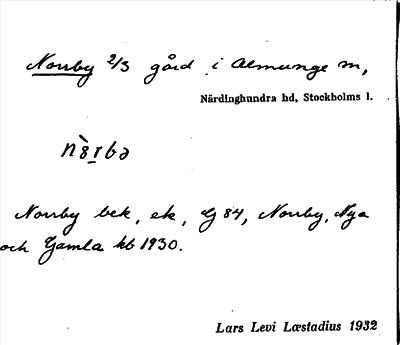 Norrby 2/3 gård i Almunge sn,
Närdinghundra hd, Stockholms l.
Norrby bek, ek, G 84, Norrby, Nya
och Gamla kb 1930.
Lars Levi Læstadius 1932